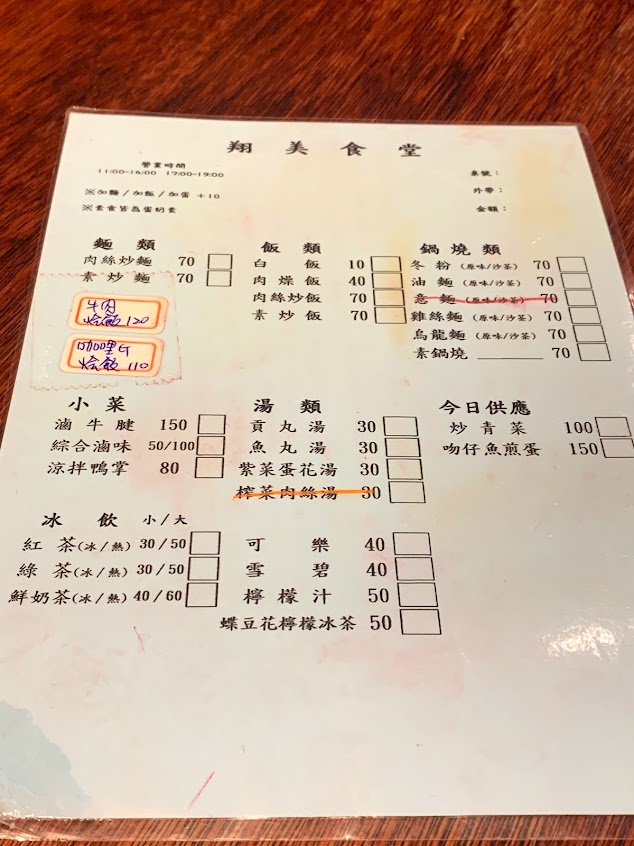 翔美食堂
營業時間
11:00-16:00 17:00-19:00
桌號：
※加麵／加飯／加蛋 +10
外帶：
※素食皆為蛋奶素
金額：
麵類
肉絲炒麵 70
素炒麵 70
牛肉
烩飯 120
咖哩G
烩飯 110
飯類
白飯 10
肉燥飯 40
肉絲炒飯 70
素炒飯 70
鍋燒類
冬粉(原味/沙茶) 70
油麵(原味/沙茶) 70
意麵(原味/沙茶) 70
雞絲麵(原味/沙茶) 70
烏龍麵(原味/沙茶) 70
素鍋燒 ______ 70
小菜
滷牛腱 150
綜合滷味 50/100
涼拌鴨掌 80
湯類
貢丸湯 30
魚丸湯 30
紫菜蛋花湯 30
榨菜肉絲湯 30
今日供應
炒青菜 100
吻仔魚煎蛋 150
冰飲 小/大
紅茶(冰/熱) 30/50
綠茶(冰/熱) 30/50
鮮奶茶(冰/熱) 40/60
可樂 40
雪碧 40
檸檬汁 50
蝶豆花檸檬冰茶 50